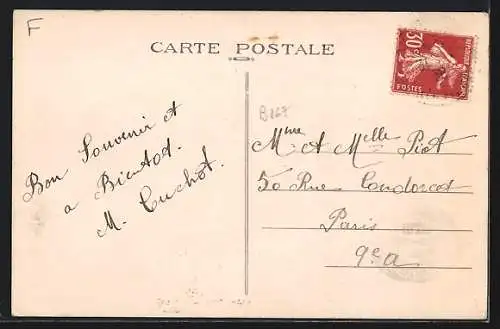 F
CARTE POSTALE
30c
POSTES
REPUBLIQUE FRANÇAISE
B167
Bon Souvenir et
a Bientot.
M. Cuchot.
Mme et Melle Piot
50 Rue Condorcet
Paris
9e a